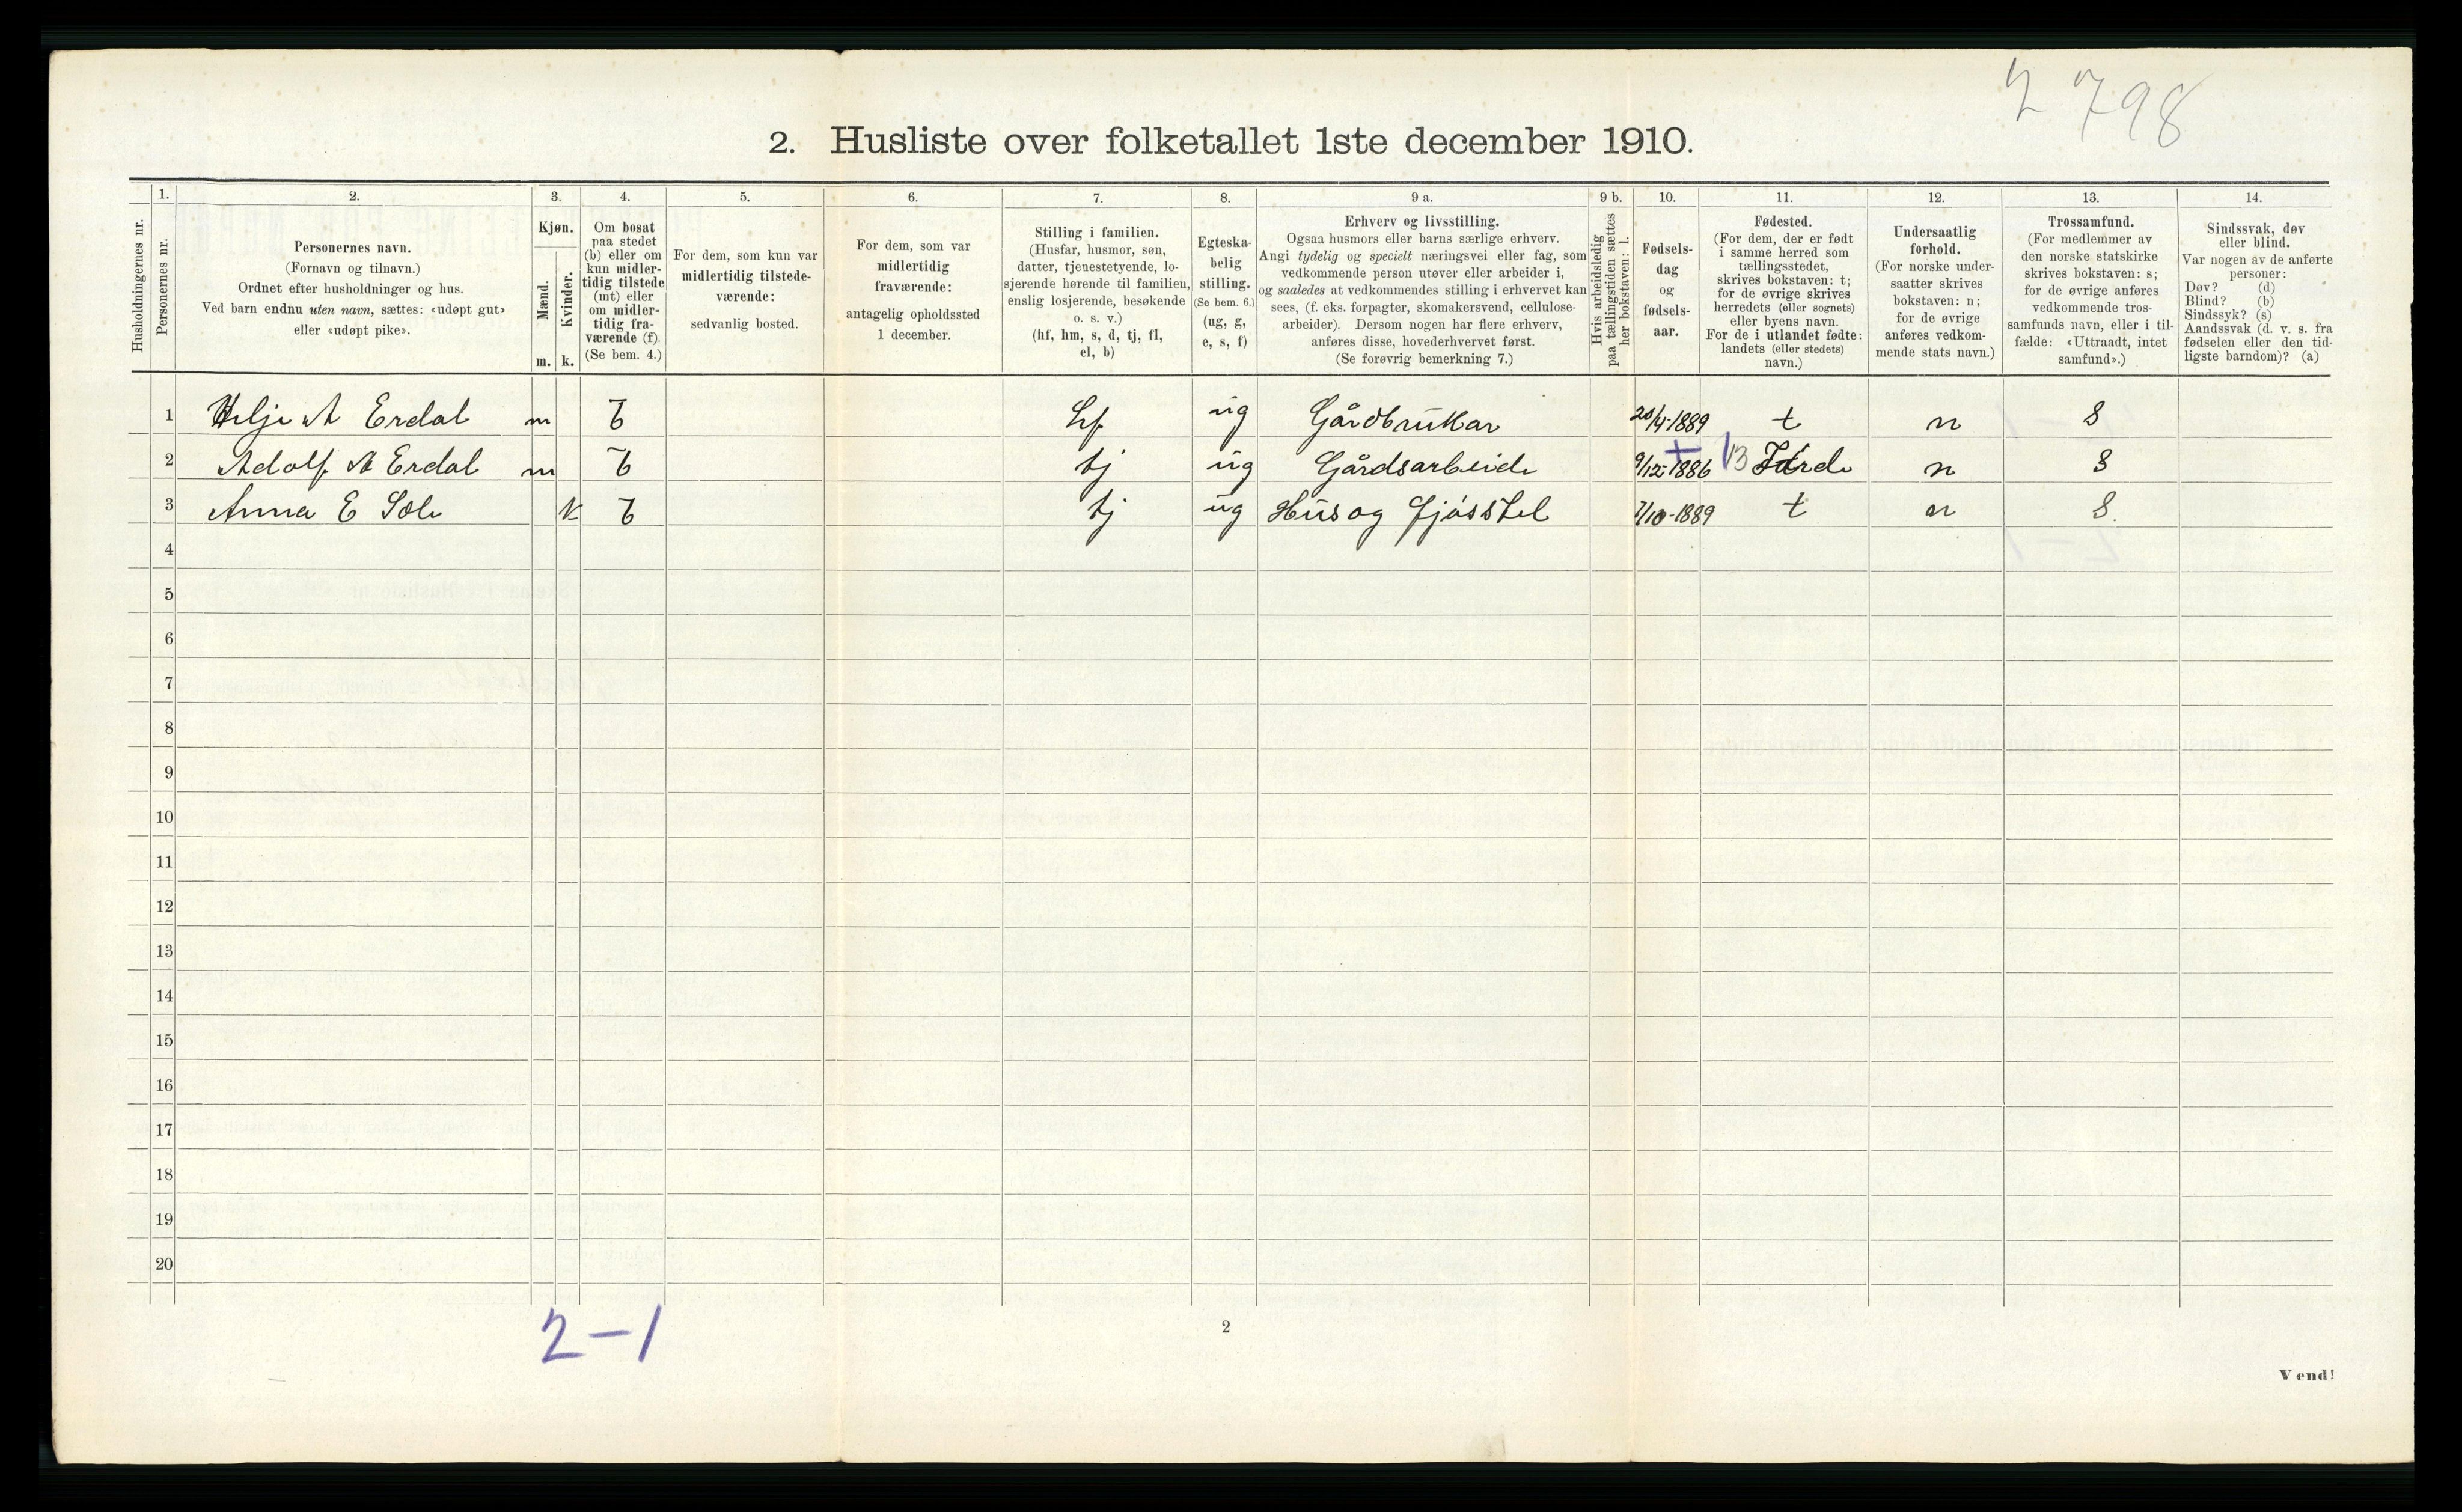 2 798
2. Husliste over folketallet 1ste december 1910.
Husholdningernes nr.
1.
Personernes nr.
2.
Personernes navn.
(Fornavn og tilnavn.)
Ordnet efter husholdninger og hus.
Ved barn endnu uten navn, sættes: «udøpt gut»
eller «udøpt pike».
3.
Kjøn.
Mænd.
Kvinder.
m. k.
4.
Om bosat
paa stedet
(b) eller om
kun midler-
tidig tilstede
(mt) eller
om midler-
tidig fra-
værende (f).
(Se bem. 4.)
5.
For dem, som kun var
midlertidig tilstede-
værende:
sedvanlig bosted.
6.
For dem, som var
midlertidig
fraværende:
antagelig opholdssted
1 december.
7.
Stilling i familien.
(Husfar, husmor, søn,
datter, tjenestetyende, lo-
sjerende hørende til familien,
enslig losjerende, besøkende
o. s. v.)
(hf, hm, s, d, tj, fl,
el, b)
8.
Egteska-
belig
stilling.
(Se bem. 6.)
(ug, g,
e, s, f)
9 a.
Erhverv og livsstilling.
Ogsaa husmors eller barns særlige erhverv.
Angi tydelig og specielt næringsvei eller fag, som
vedkommende person utøver eller arbeider i,
og saaledes at vedkommendes stilling i erhvervet kan
sees, (f. eks. forpagter, skomakersvend, cellulose-
arbeider). Dersom nogen har flere erhverv,
anføres disse, hovederhvervet først.
(Se forøvrig bemerkning 7.)
9 b.
Hvis arbeidsledig
paa tællingstiden sættes
her bokstaven: l.
10.
Fødsels-
dag
og
fødsels-
aar.
11.
Fødested.
(For dem, der er født
i samme herred som
tællingsstedet,
skrives bokstaven: t;
for de øvrige skrives
herredets (eller sognets)
eller byens navn.
For de i utlandet fødte:
landets (eller stedets)
navn.)
12.
Undersaatlig
forhold.
(For norske under-
saatter skrives
bokstaven: n;
for de øvrige
anføres vedkom-
mende stats navn.)
13.
Trossamfund.
(For medlemmer av
den norske statskirke
skrives bokstaven: s;
for de øvrige anføres
vedkommende tros-
samfunds navn, eller i til-
fælde: «Uttraadt, intet
samfund».)
14.
Sindssvak, døv
eller blind.
Var nogen av de anførte
personer:
Døv? (d)
Blind? (b)
Sindssyk? (s)
Aandssvak (d. v. s. fra
fødselen eller den tid-
ligste barndom)? (a)
1 A Erdal m b hf ug Gårdbrukar 20/4-1889 t n S
2 Adolf A Erdal m b tj ug Gårdsarbeide 9/12-1886 13 Førde n S
3 Anna E Sole k b tj ug Hus og fjøsstel 7/10-1889 t n S.
4
5
6
7
8
9
10
11
12
13
14
15
16
17
18
19
20
2-1
2
Vend!